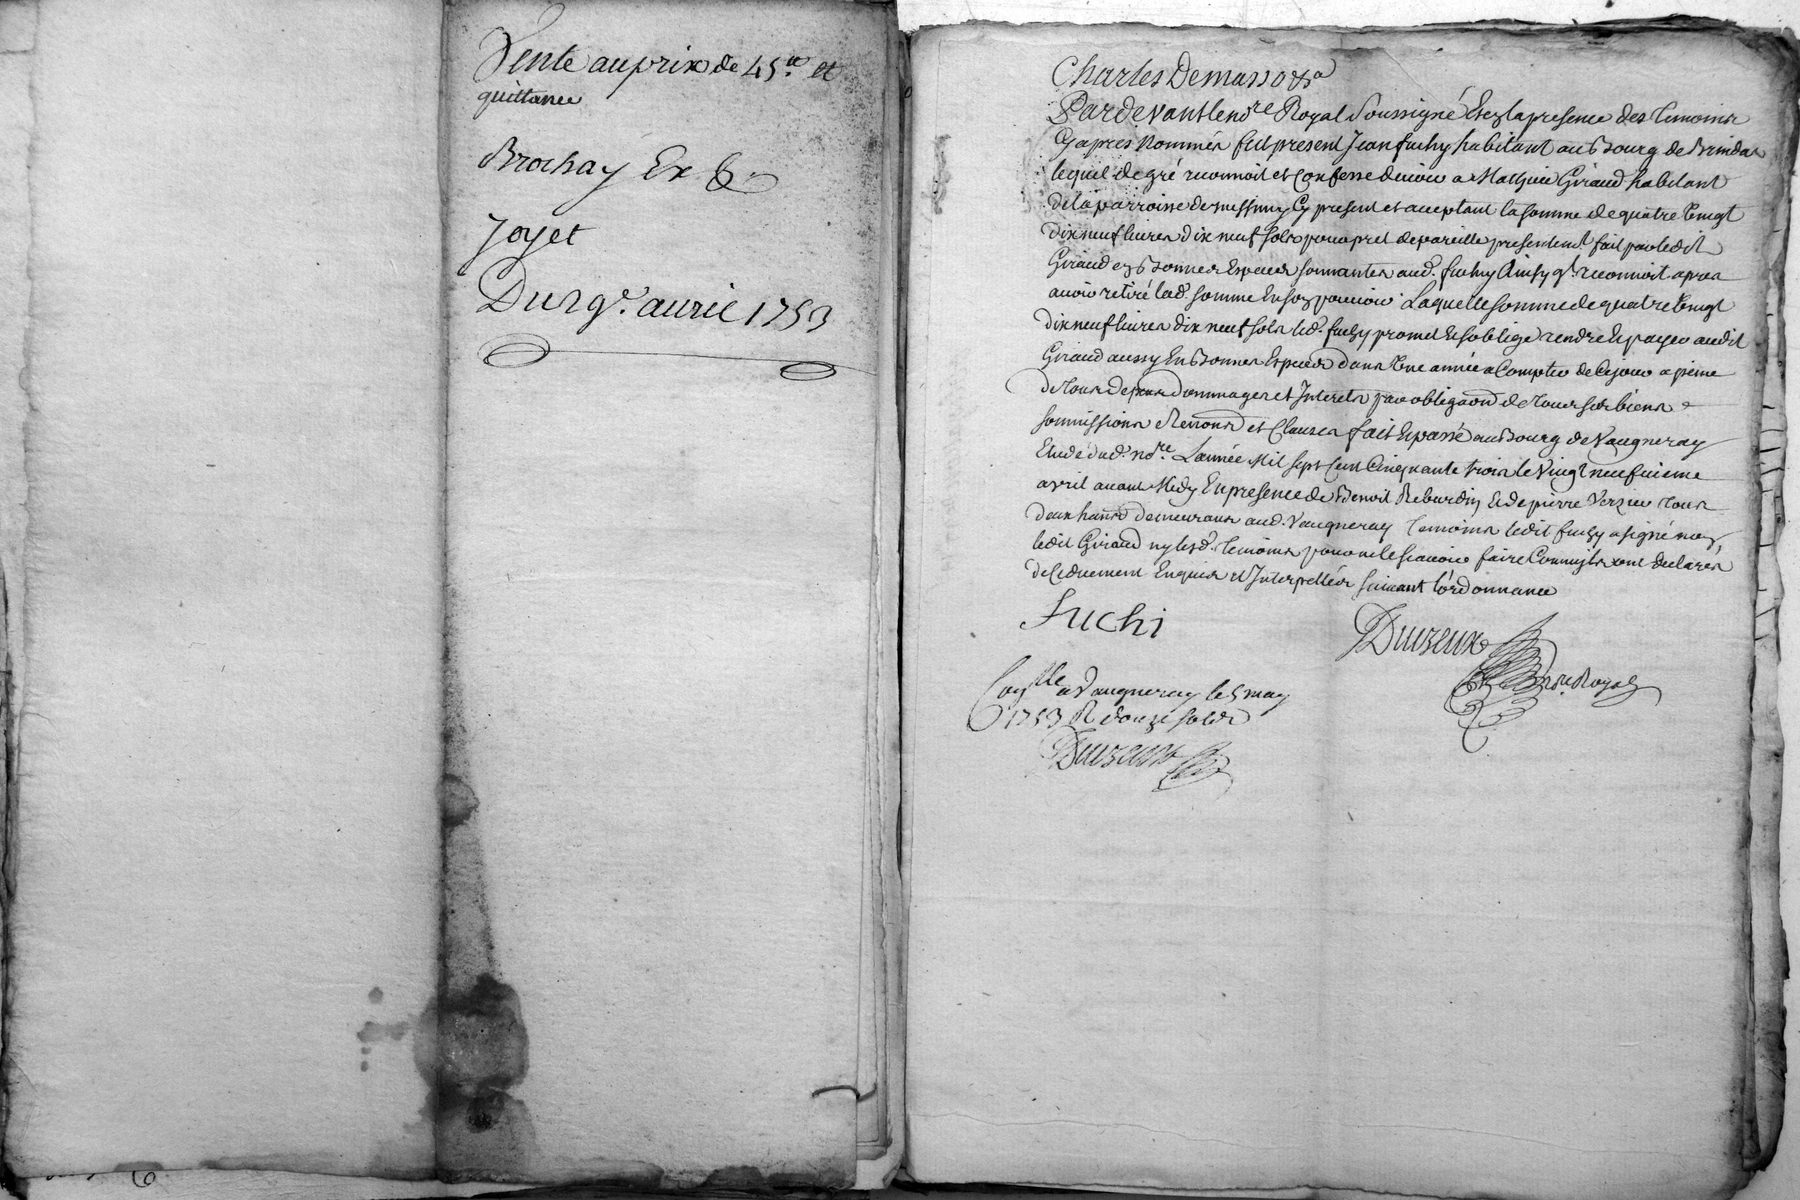 Vente au prix de 45 ll. et
quittance
Brochay Ex &
Joyet
Du 29e. avril 1753
Charles Demasso &a
Pardevant le nore Royal soussigné et en la presence des temoins
cy apres nommés fut present Jean fuchy habitant au Bourg de Brindas
lequel de gré reconnoit et confesse devoir a Mathieu Giraud habitant
de la parroisse de messimy cy present et acceptant la somme de quatre vingt
dix neuf livres dix neuf sols pour pret de pareille presentement fait par ledit
Giraud en Bonnes Especes sonnantes aud. fuchy Ainsy ql. reconnoit apres
avoir retiré lad. somme en son pouvoir Laquelle somme de quatre vingt
dix neuf livres dix neuf sols led. fuchy promet et soblige rendre et payer audit
Giraud aussy En Bonnes Especes dans une année a Compter de Ce jour a peine
de tous depens dommages et Interets par obligaon de tous ses biens
soumissions Renons et Clauses fait et passé au Bourg de Vaugneray
Etude dud. nore. L'année Mil sept Cent Cinquante trois le Vingt neufvieme
avril avant Midy En presence de Benoit Reburdin et de pierre Verzieu tous
deux habns demeurans aud. Vaugneray temoins ledit fuchy a signé non
ledit Giraud ny lesd. temoins pour ne le scavoir faire Comm'ils ont declarés
de Ce duement Enquis et Interpellés suivant l'ordonnance
Fuchi
Duvzeux
nore Royal
Conlle a Vaugneray le 5 may
1753 R douze sols
Duvzeux